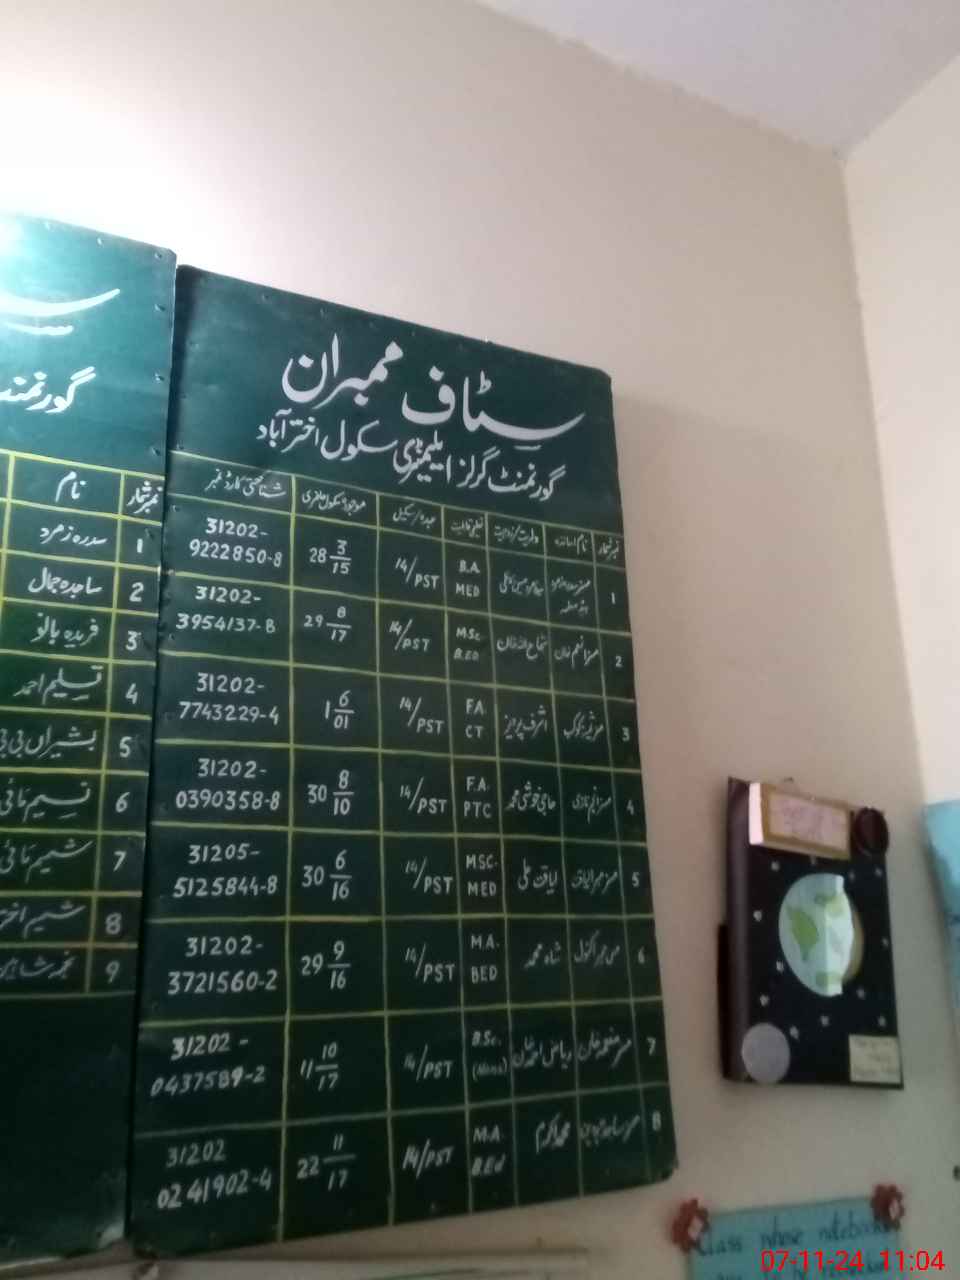 سٹاف ممبران
گورنمنٹ گرلز ایلیمنٹری سکول اختر آباد
نمبر شمار نام اساتذہ ولدیت/زوجیت تعلیمی قابلیت عہدہ/سکیل موجودہ سکول حاضری شناختی کارڈ نمبر
1 B.A. MED 14/PST 28 3/15 31202-9222850-8
2 مسز انعم خان شجاع اللہ خان M.Sc. B.ED 14/PST 29 8/17 31202-3954137-8
3 اشرف پرویز F.A. CT 14/PST 1 6/01 31202-7743229-4
4 حاجی خوشی محمد F.A. PTC 14/PST 30 8/10 31202-0390358-8
5 لیاقت علی MSC. MED 14/PST 30 6/16 31205-5125844-8
6 شاہ محمد M.A. BED 14/PST 29 9/16 31202-3721560-2
7 ریاض احمد خان B.Sc. (Hons) 14/PST 11 10/17 31202-0437589-2
8 محمد اکرم M.A. B.Ed 14/PST 22 11/17 31202 0241902-4
گورنمنٹ
نمبر شمار نام
1 سدرہ زمرد
2 ساجدہ جمال
3 فریدہ بانو
4 تسلیم احمد
5 بشیراں بی بی
6 نسیم مائی
7 شمیم مائی
8 شمیم اختر
9 نجمہ شاہین
Class
07-11-24 11:04